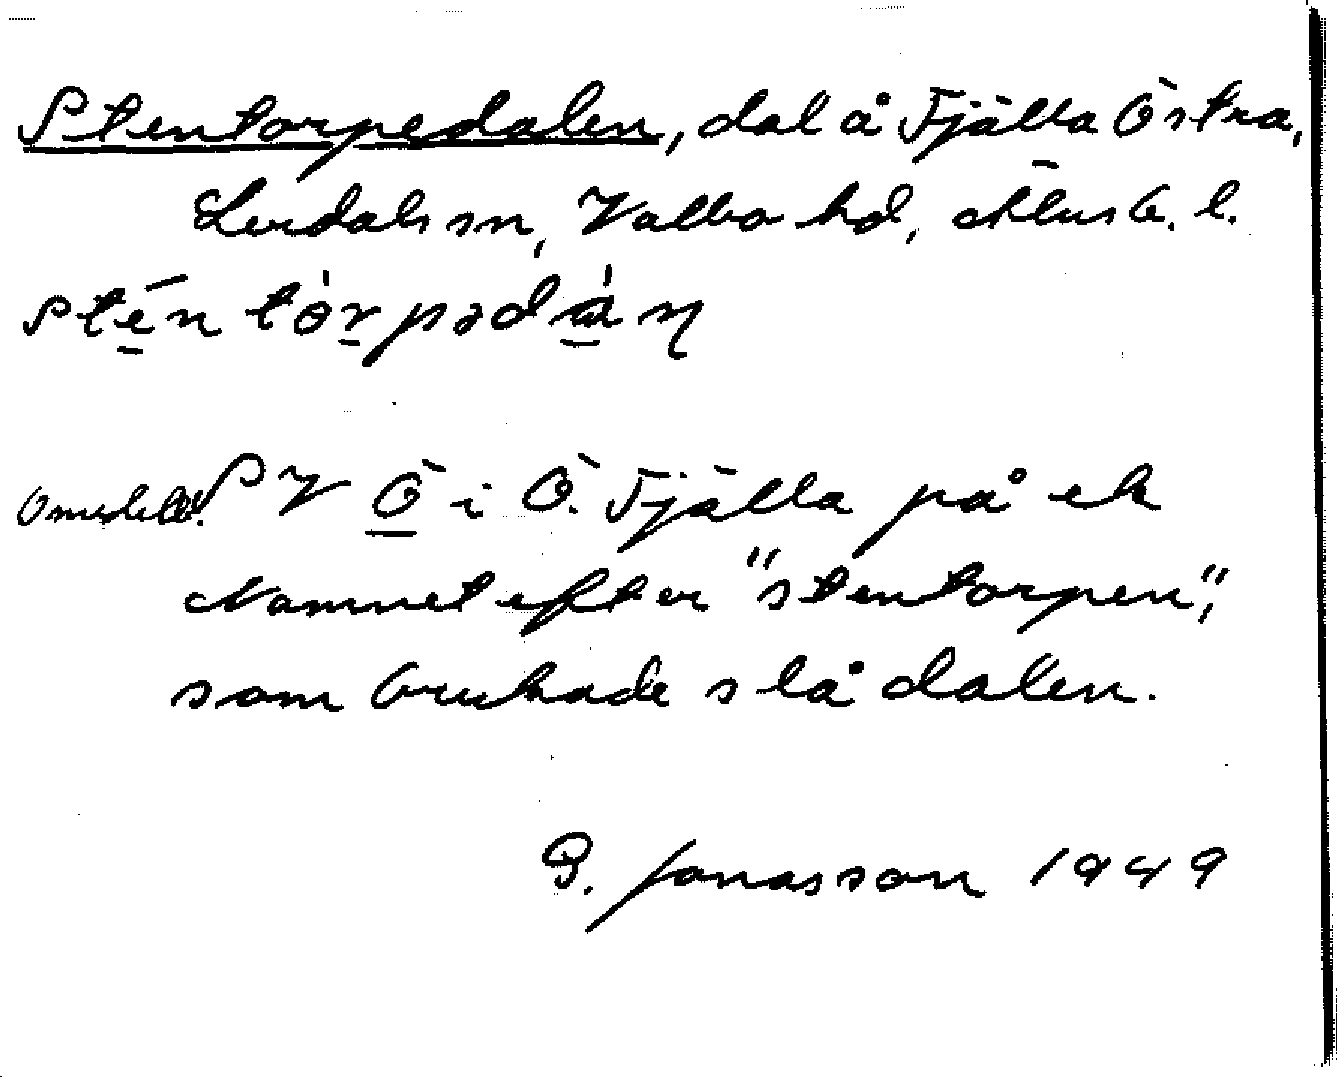 Stentorpedalen, dal å Fjälla Östra,
Lerdals sn, Valbo hd, Älvsb. l.
stén tòrpədàn
Omedelb. S V Ö i Ö. Fjälla på ek
Namnet efter "stentorpen",
som brukade slå dalen.
G. Jonasson 1949